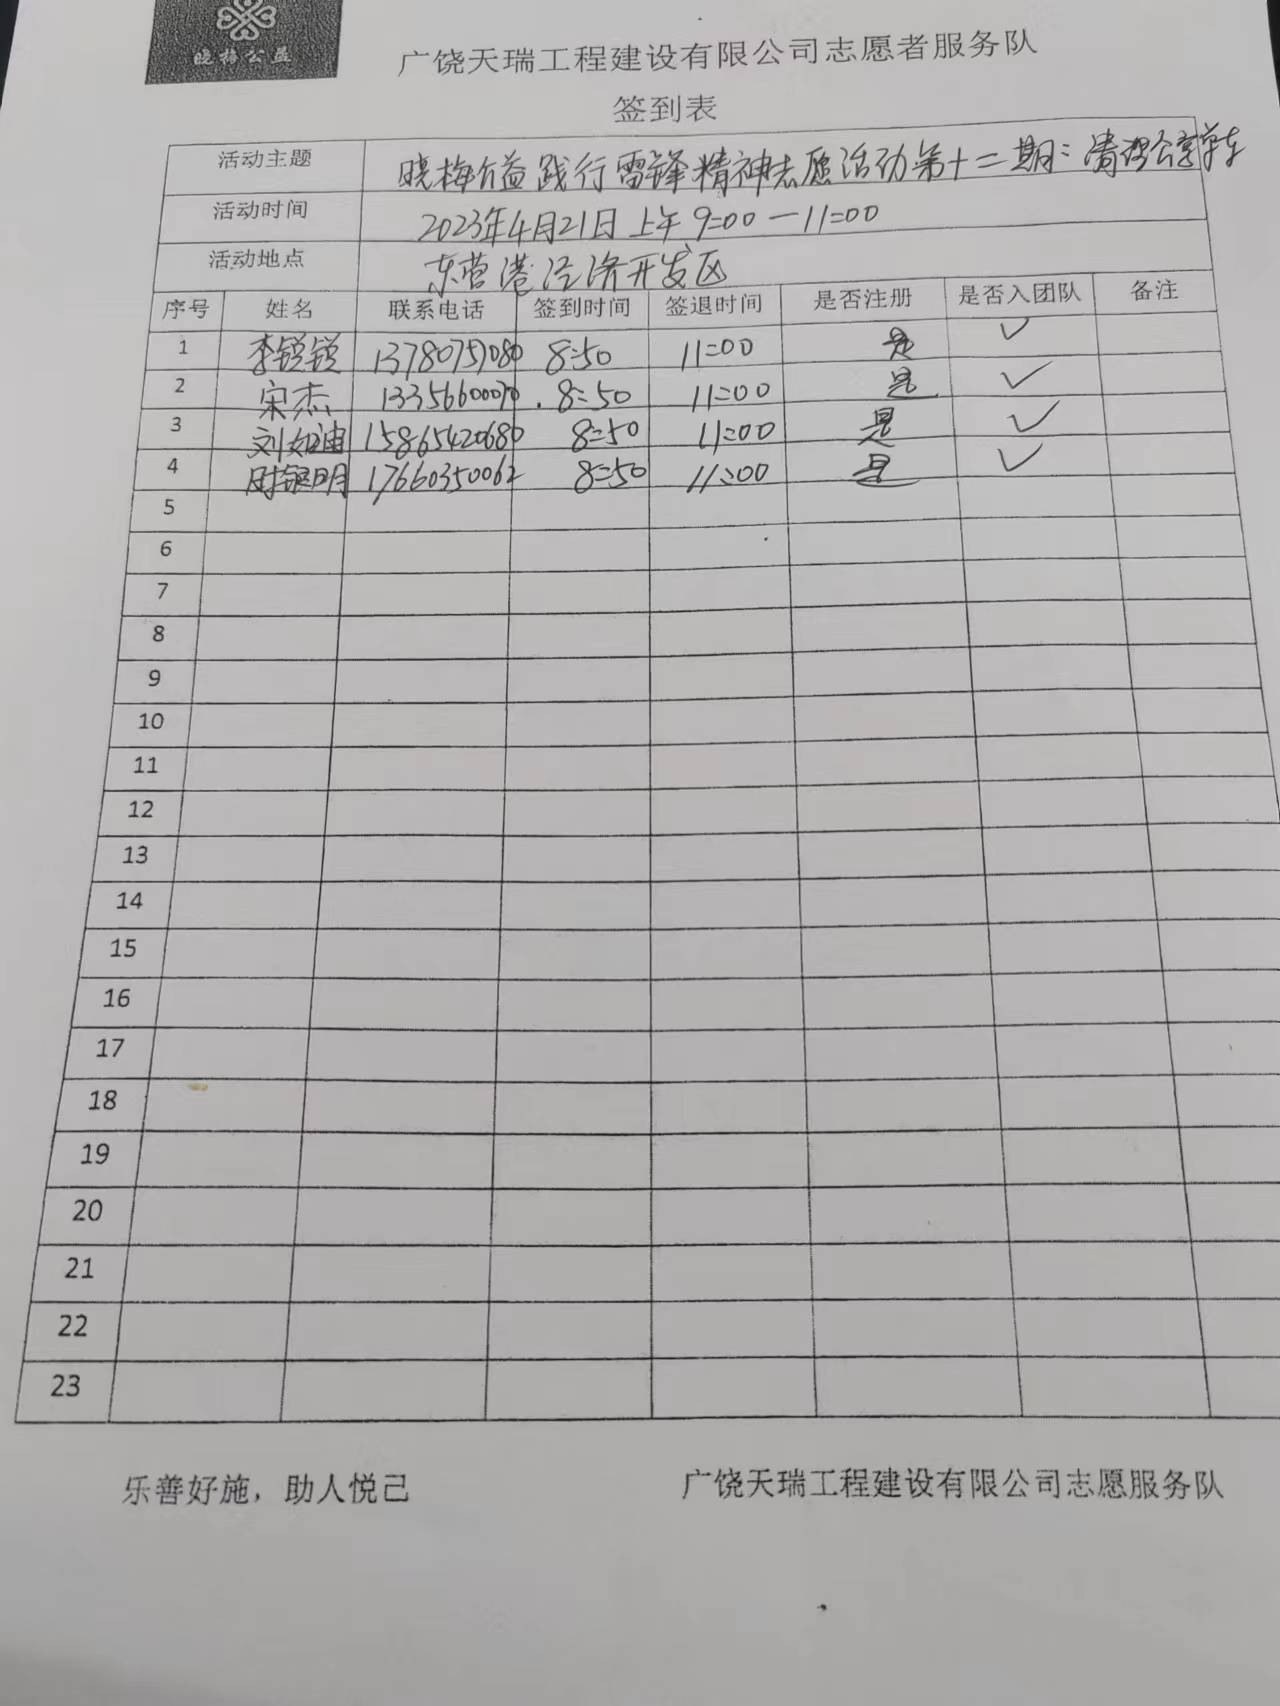 晓梅公益
广饶天瑞工程建设有限公司志愿者服务队
签到表
活动主题 晓梅公益践行雷锋精神志愿活动第十二期：清理公享单车
活动时间 2023年4月21日上午9:00—11:00
活动地点 东营港经济开发区
序号 姓名 联系电话 签到时间 签退时间 是否注册 是否入团队 备注
1 李锐锐 13780757080 8:50 11:00 是 ✓
2 宋杰 13356600070 8:50 11:00 是 ✓
3 刘如迪 15865420680 8:50 11:00 是 ✓
4 明 17660350062 8:50 11:00 是 ✓
5
6
7
8
9
10
11
12
13
14
15
16
17
18
19
20
21
22
23
乐善好施，助人悦己 广饶天瑞工程建设有限公司志愿服务队